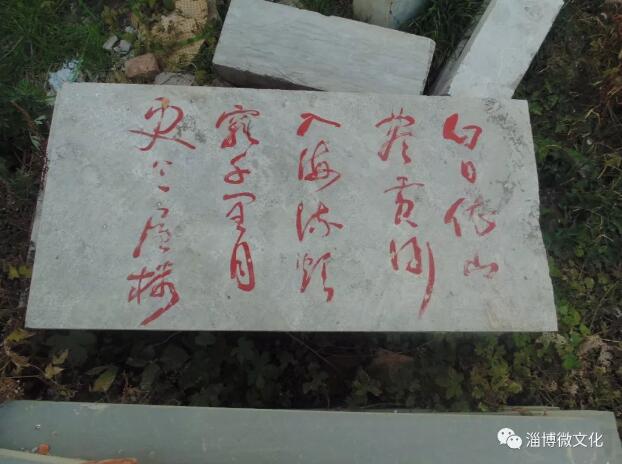 白日依山
尽黄河
入海流欲
穷千里目
更上一层楼
淄博微文化